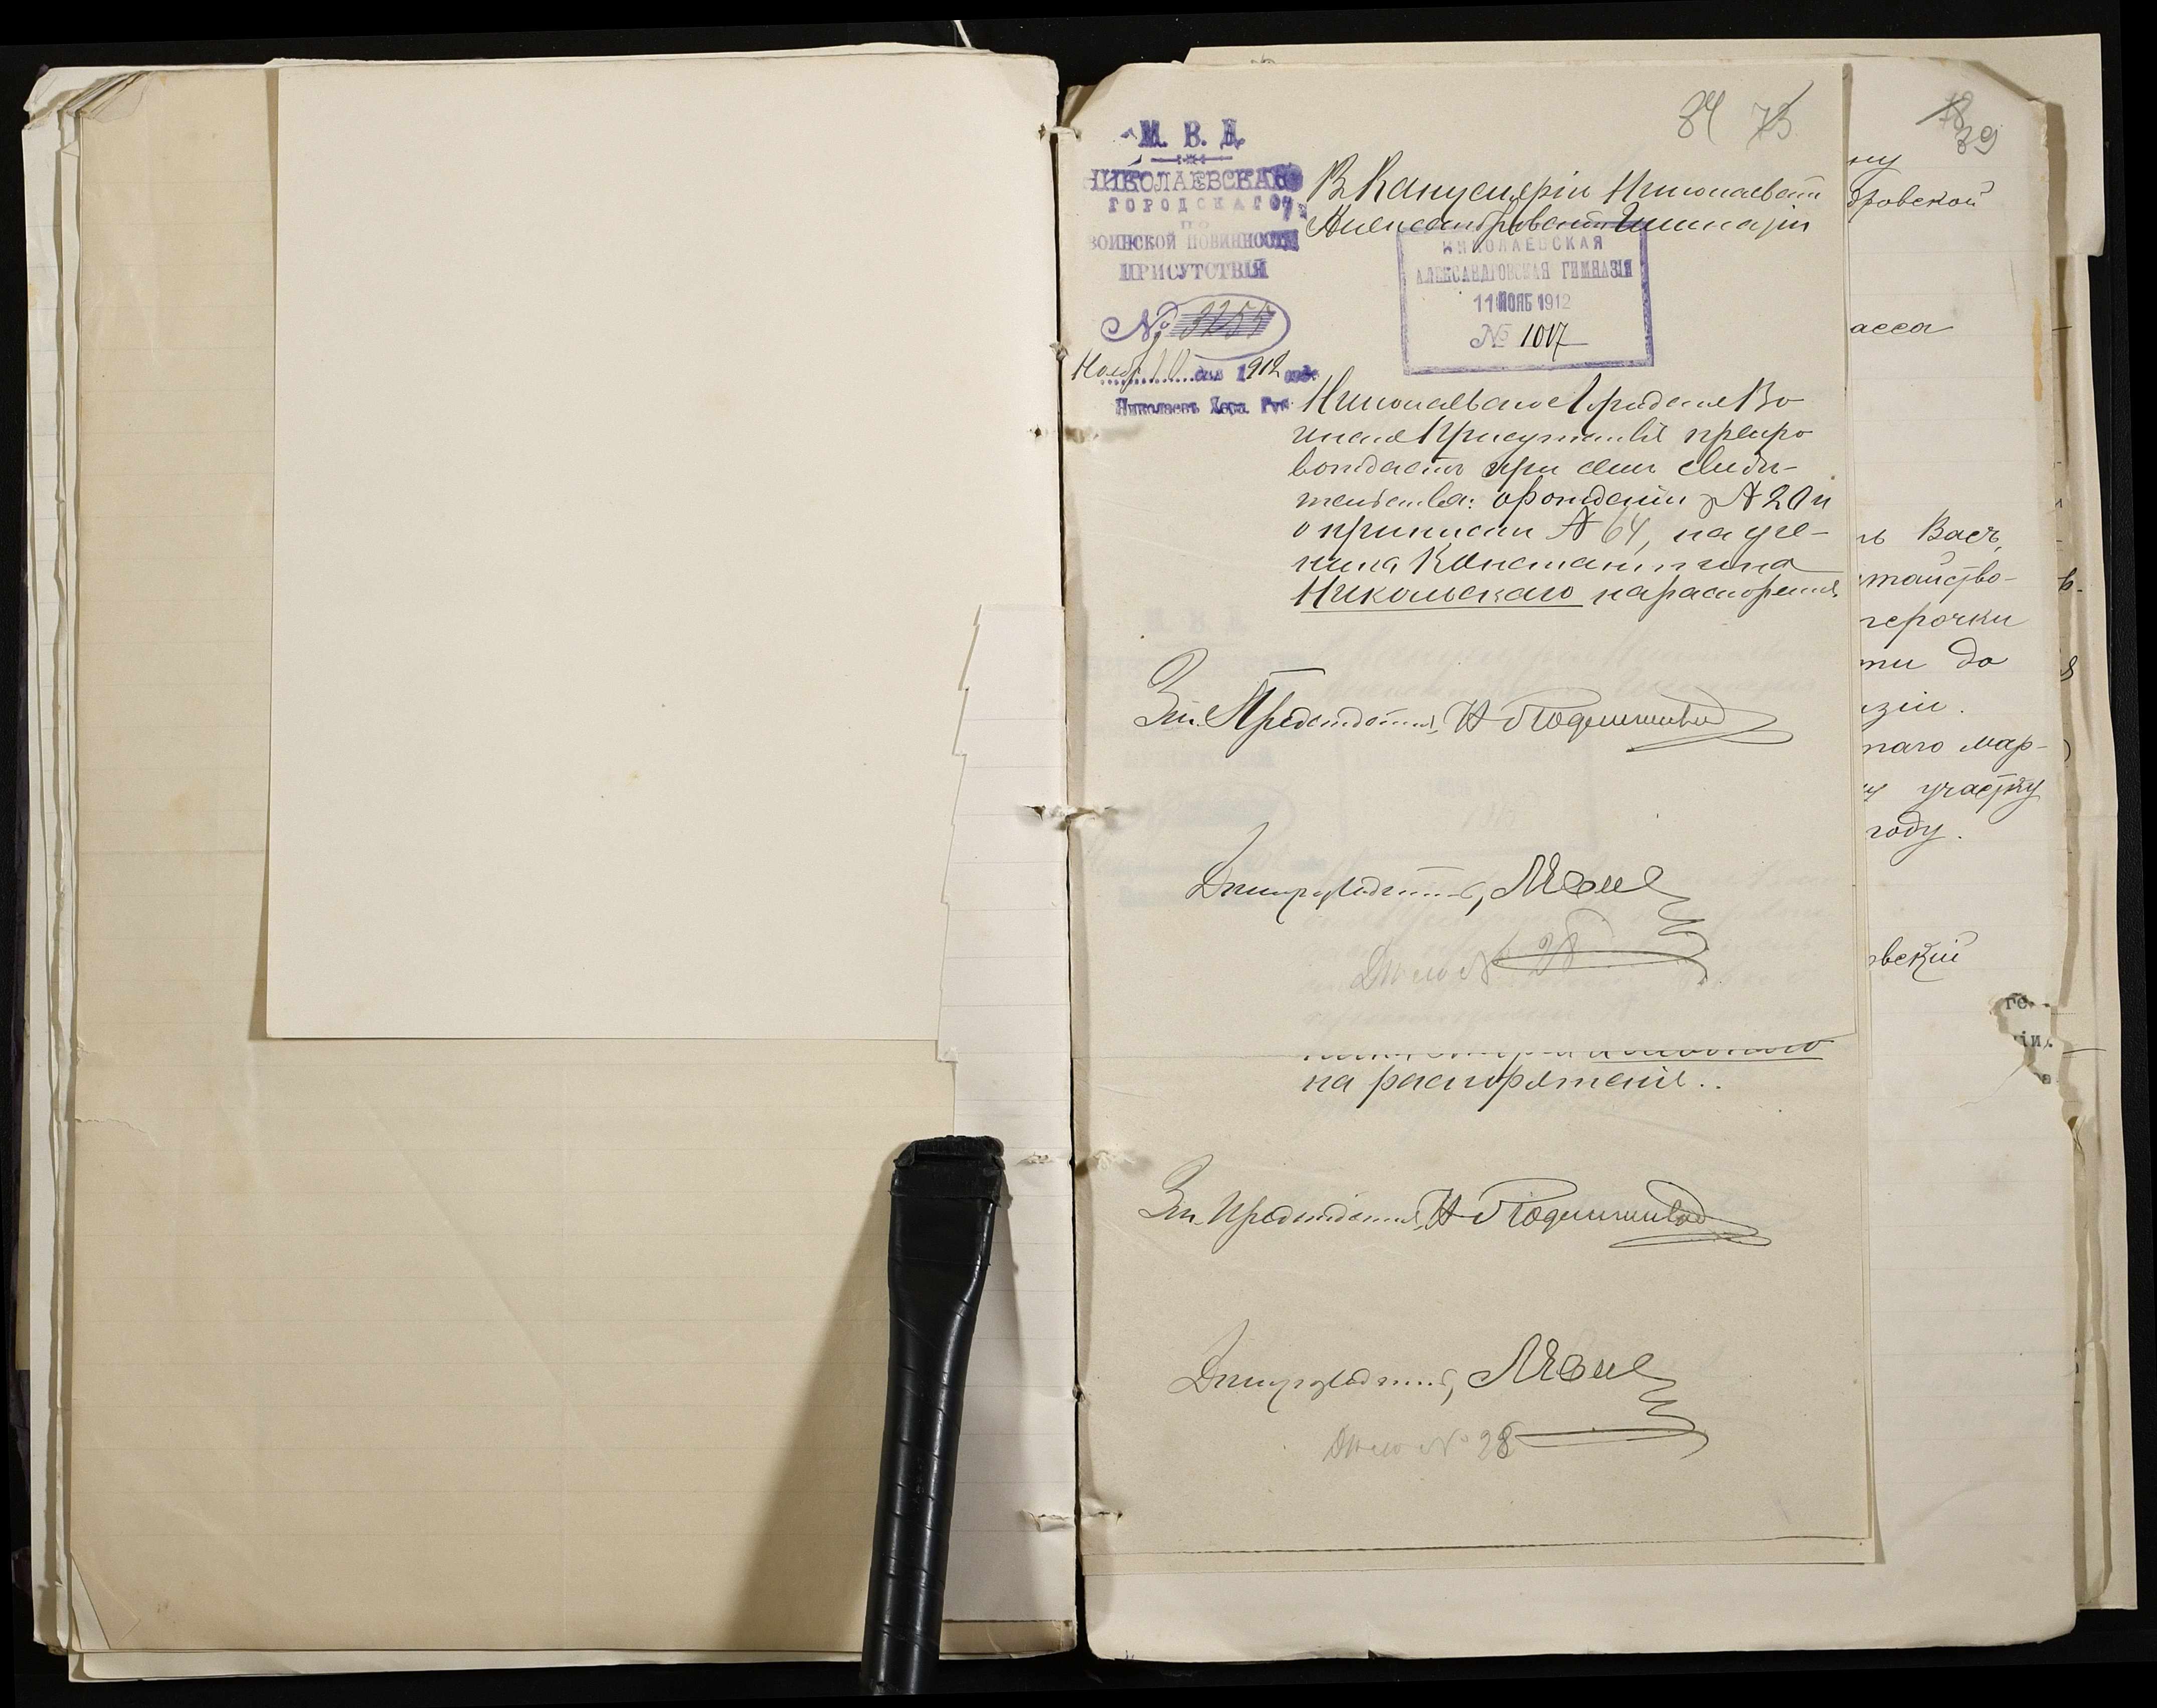 84 73
М. В. Д.
НИКОЛАЕВСКАГО
ГОРОДСКАГО
ПО
ВОИНСКОЙ ПОВИННОСТИ
ПРИСУТСТВІЯ
№ 3255
Нояб 10 дня 1912 года
Николаевъ Херс. Губ.
В Канцелярію Николаевской
Александровской Гимназіи
НИКОЛАЕВСКАЯ
АЛЕКСАНДРОВСКАЯ ГИМНАЗІЯ
11 НОЯБ 1912
№ 1017
Николаевское Городское Во
инское Присутствіе препро
вождаетъ при семъ свидѣ-
тельства: о рожденіи № 20 и
о припискѣ № 64, на уче-
ника Константина
Никольскаго на распоряженіе
Зам. Предсѣдателя, Н
Дѣлопроизводитель,
Дѣло № 28
на распоряженіе..
Зам. Предсѣдателя, Н
Дѣлопроизводитель,
Дѣло № 28
18
39
ну
дровской
асса
ъ Васъ,
тайство-
черочки
ти до
зіи.
таго мар-
у участку
году.
вскій
ге
іи.